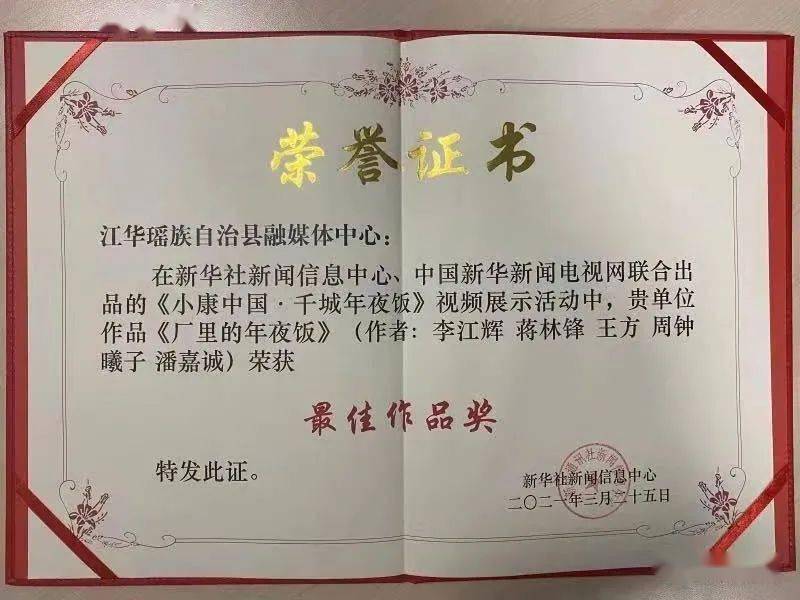 荣誉证书
江华瑶族自治县融媒体中心：
在新华社新闻信息中心、中国新华新闻电视网联合出
品的《小康中国·千城年夜饭》视频展示活动中，贵单位
作品《厂里的年夜饭》（作者：李江辉 蒋林锋 王方 周钟
曦子 潘嘉诚）荣获
最佳作品奖
特发此证。
新华社新闻信息中心
二〇二一年三月二十五日